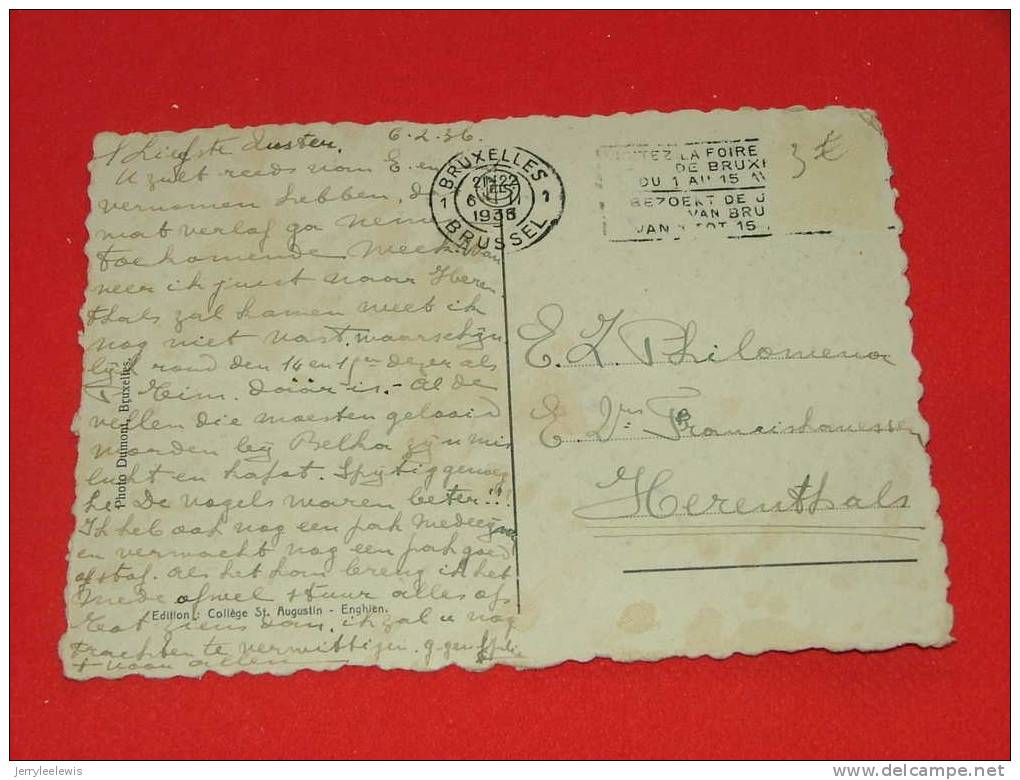 Liefste Zuster, 6.2.36.
U zult reeds van E. en
vernomen hebben, d
wat verlof ga neme
toekomende week. Wan
neer ik juist naar Heren
thals zal komen weet ik
nog niet vast, waarschijn
lijk rond den 14 en 15en dezer als
Eerw. daar is. - Al de
vellen die moesten gelooid
worden bij Belka zijn mis
lucht en kapot. Spijtig genoeg
he. De vogels waren beter!!!
Ik heb ook nog een pak
en verwacht nog een pak goed
of stof. Als het kom breng ik het
mede ofwel stuur alles af.
Tot ziens dan, ik zal u nog
trachten te verwittigen. g. gen
+ van allen
Photo Dumont, Bruxelles.
Edition : Collège St. Augustin - Enghien.
BRUXELLES
1 1
21-22
6 II
1936
BRUSSEL
VISITEZ LA FOIRE
DE BRUX
DU 1 AU 15
BEZOEKT DE J
VAN BRU
VAN TOT 15
3 €
E. Z. Philomena
E. Zrs Franciskanessen
Herenthals
jerryleelewis
www.delcampe.net